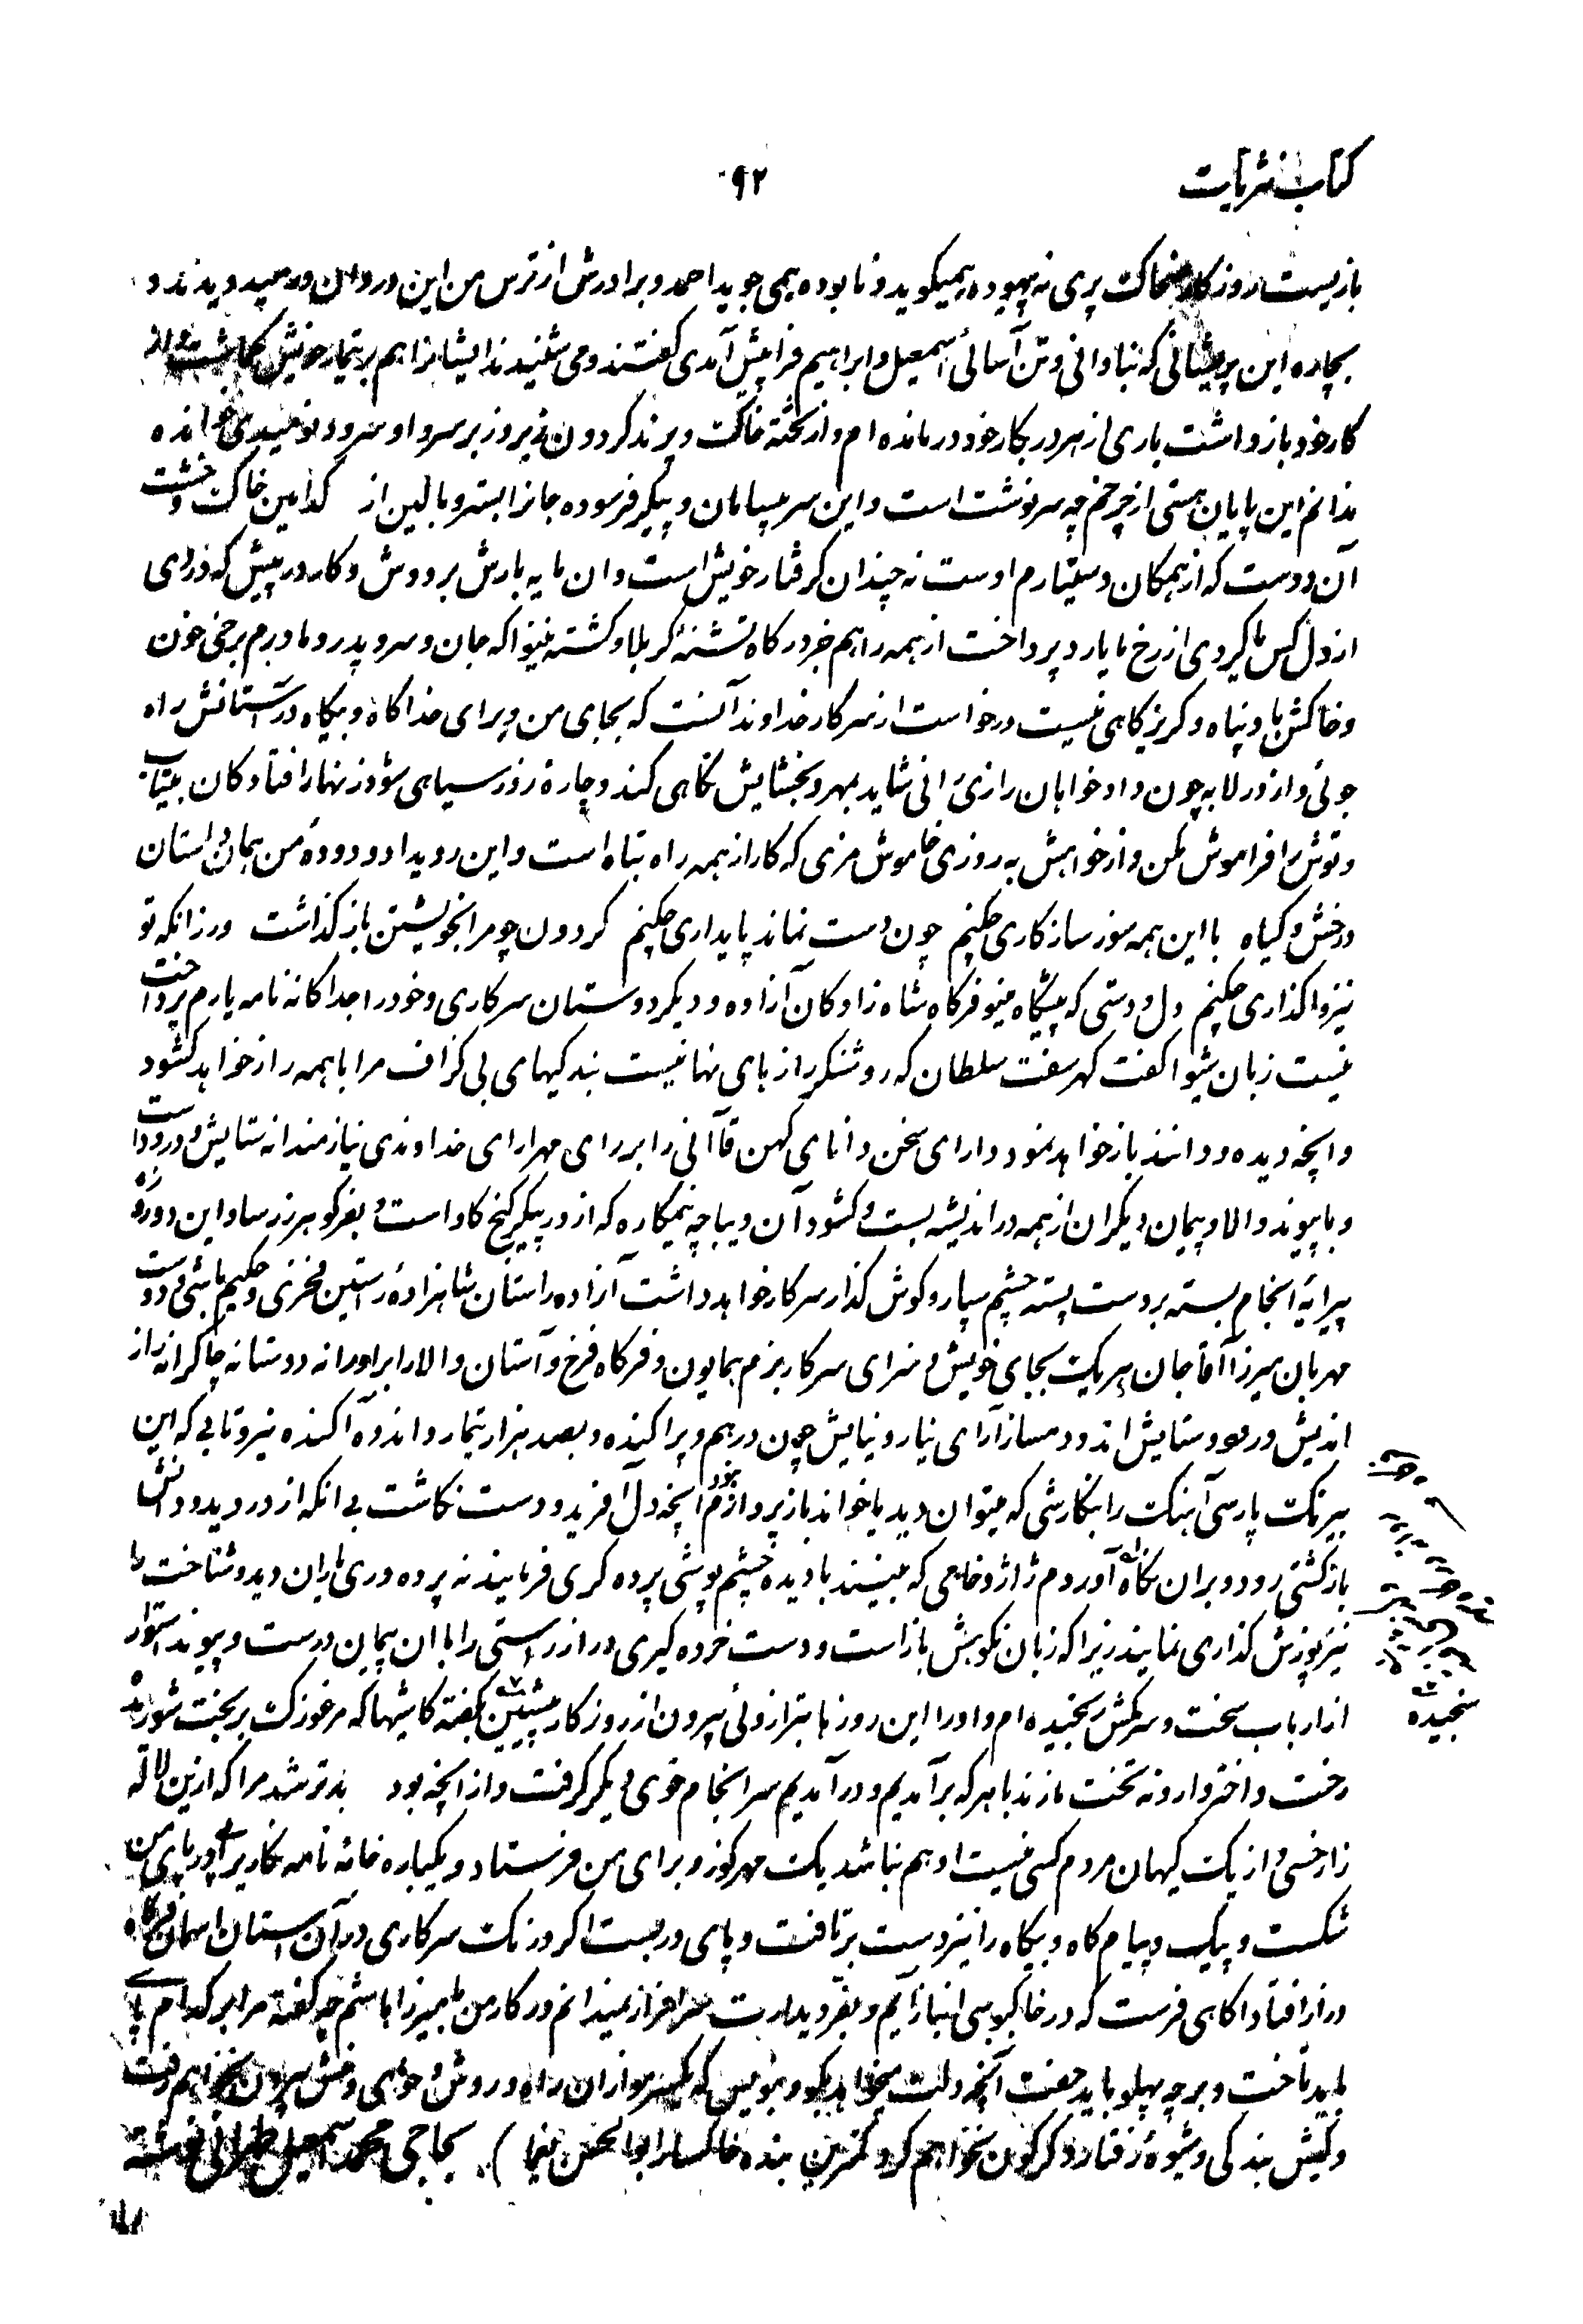 کتاب نثریات
۹۲
بازیست روزکار ضحاکت پری نه بیهوده همیکوید و نابوده همی جوید احمد و برادرش از ترس من این در وان در همیدویدند و
بچاره این پریشانی که نتاوانی و تن آسانی اسمعیل و ابراهیم فراپیش آمدی کفتند و می شنیدند ایشانرا هم برتیمار خویش
کار خود بازداشت باری از هر در بکار خود درمانده ام و از تخته خاکت و پرند کردون نیز بروز بر سر و او سرود نومیدی خوانده
ندانم این پایان هستی از چرخم چه سرنوشت است و این سر بیسامان و پیکر فرسوده جانرا بستر و بالین از کدامین خاکت و خشت
آن دوست که از همکان دستیارم اوست نه چندان کرفتار خویش است و ان مایه بارش بر دوش و کار در پیش که دزای
از دل کس یا کردی از رخ ما یارد پرداخت از همه راهم جز درکاه تشنهٔ کربلا و کشته نینوا که جان و سر و پدر و مادرم برخی خون
و خاکش باد پناه و کریزکاهی نیست درخواست از سرکار خداوند آنست که بجای من و برای خدا کاه و بیکاه در آستانش راه
جوئی و از در لابه چون دادخواهان رازی رانی شاید بمهر و بخشایش نکاهی کند و چارهٔ روز سیاهی شود زنهار افتادکان بیتاب
و توش را فراموش مکن و از خواهش به روزی خاموش مزی که کار از همه راه تباه است و این رویداد و دودهٔ من همان داستان
درخش و کیاه با این همه سوز سازکاری چکنم چون دست نماند پایداری چکنم کردون چو مرا بخویشتن بازکذاشت ورزانکه تو
نیز واکذاری چکنم دل و دستی که پیشکاه مینو فرکاه شاه زادکان آزاده و دیکر دوستان سرکاری و خود را جداکانه نامه یارم پرداخت
نیست زبان شیوا کفت کهر سفت سلطان که روشنکر رازهای نهانیست بندکیهای بی کزاف مرا با همه راز خواهد کشود
و آنچه دیده و دانند باز خواهد نمود دارای سخن دانای کهن قاآنی را بر رای مهر ارای خداوندی نیازمندانه ستایش و درود است
و با پیوند والا و پیمان دیکران از همه در اندیشه بست و کشود آن دیباچه نیمکاره که از در پیکر کنج کاو است و بغر کوهر زرساو این دوروزه
پیرایهٔ انجام بسته بر دست بسته چشم سپار و کوش کذار سرکار خواهد داشت آزاده راستان شاهزادهٔ راستین فخری و حکیم باشی و دوست
مهربان میرزا آقاجان هریکت بجای خویش و سزای سرکار بزم همایون و فرکاه فرخ و آستان والا را برادرانه دوستانه چاکرانه راز
اندیش و درود و ستایش اندود دمساز آرای نیاز و نیایش چون درهم و پراکنده و بصد هزار تیمار و اندوه آکنده نیرو تابی که این
بیرنکت پارسی آهنکت را بنکارشی که میتوان دید یا خواند باز پردازم نبود آنچه دل آفرید و دست نکاشت بی انکه از در دید و دانش
بازکشتی رود و بران نکاه آوردم ژاژ و خامی که ببینند با دیده چشم پوشی پرده کری فرمایند نه پرده دری یاران دید و شناخت را
نیز پوزش کذاری نمایند زیرا که زبان نکوهش باز است و دست خرده کیری دراز راستی را با ان پیمان درست و پیوند استوار
از ارباب سخت و سرکش رنجیده ام و او را این روزها بترازوئی بیرون از روزکار پیشین بکفته کاشیها که مرغوزکت بربخت شورید
سنجیده
رخت و اختر وارونه تخت نازند با هرکه برآمدیم و درآمدیم سرانجام خوی دیکر کرفت و از آنچه بود بدتر شد مرا که ازین لاله
زار خسی و از یکت کیهان مردم کسی نیست او هم نباشد یکت مهر کوزو برای من فرستاد و یکباره خامهٔ نامه نکاری در پای من
شکست و پیک و پیام کاه و بیکاه را نیز دست برتافت و پای دربست اکر درنکت سرکاری در آن آستان اسمان فرکاه
دراز افتاد آکاهی فرست که در خاکبوسی انباز آیم و بفر دیدارت سرافراز نمیدانم در کار من با میرزا هاشم چه کفته مرا بر کدام پای
باید تاخت و بر چه پهلو باید خفت آنچه دلت میخواهد بکو و بنویس که یکسر مو از ان راه و روش و خوی و منش بیرون نخواهم رفت
و کیش بندکی و شیوهٔ رفتار دکرکون نخواهم کرد کمترین بنده خاکسار ابوالحسن یغما ) بحاجی محمد اسمعیل طهرانی نوشته